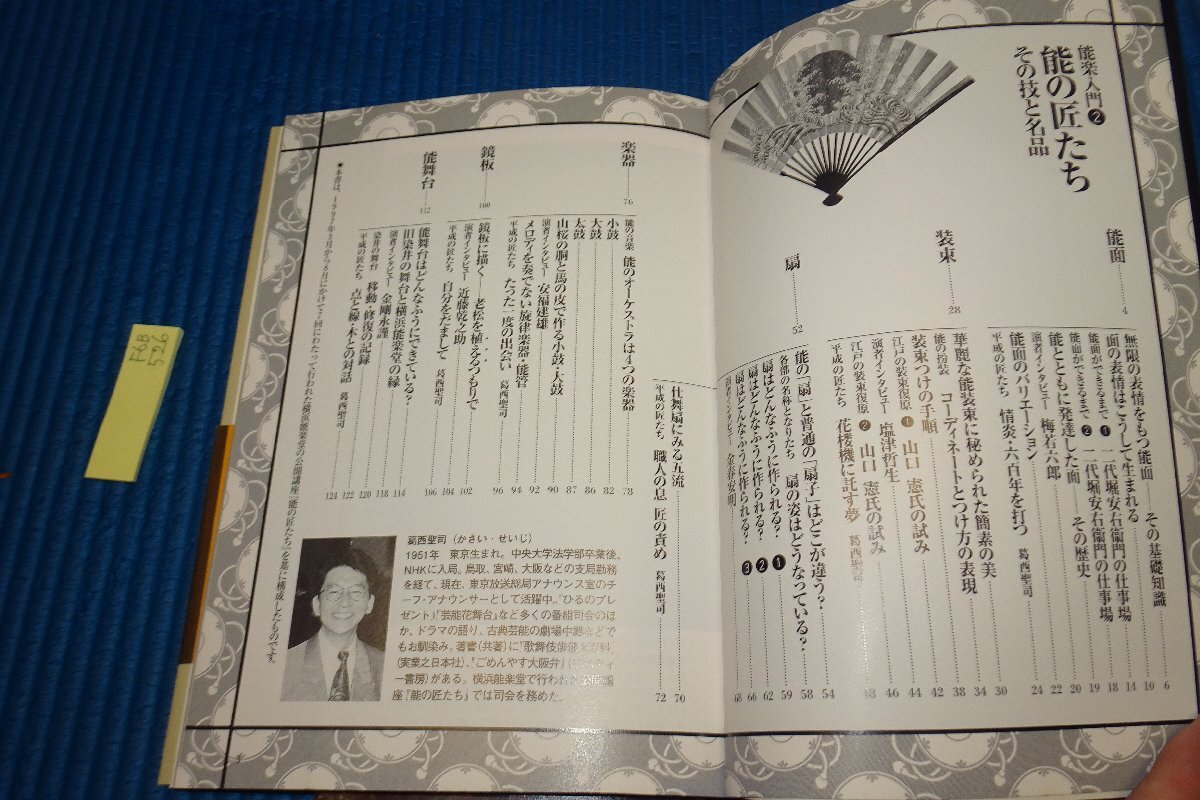 能楽入門❷
能の匠たち
その技と名品
能面……4
無限の表情をもつ能面——その基礎知識 6
面の表情はこうして生まれる 10
能面ができるまで ❶ 二代堀安右衛門の仕事場 14
能面ができるまで ❷ 二代堀安右衛門の仕事場 18
能とともに発達した面——その歴史 19
演者インタビュー 梅若六郎 20
能面のバリエーション 22
平成の匠たち 情炎・六百年を打つ 葛西聖司 24
装束……28
華麗な能装束に秘められた簡素の美 30
能の扮装 コーディネートとつけ方の表現 34
装束つけの手順 38
江戸の装束復原 ❶ 山口 憲氏の試み 42
演者インタビュー 塩津哲生 44
江戸の装束復原 ❷ 山口 憲氏の試み 46
平成の匠たち 花楼機に託す夢 葛西聖司
扇……52
能の「扇」と普通の「扇子」はどこが違う? 54
各部の名称となりたち 扇の姿はどうなっている? 58
扇はどんなふうに作られる? ❶ 59
扇はどんなふうに作られる? ❷ 62
扇はどんなふうに作られる? ❸ 66
演者インタビュー 金春安明 68
仕舞扇にみる五流 70
平成の匠たち 職人の息 匠の責め 葛西聖司 72
楽器……76
能の音楽 能のオーケストラは4つの楽器 78
小鼓 82
大鼓 86
太鼓 87
山桜の胴と馬の皮で作る小鼓・大鼓 90
演者インタビュー 安福建雄 92
メロディを奏でない旋律楽器・能管 94
平成の匠たち たった一度の出会い 葛西聖司 96
鏡板……100
鏡板に描く——老松を植えるつもりで 102
演者インタビュー 近藤乾之助 104
平成の匠たち 自分をだまして 葛西聖司 106
能舞台……112
能舞台はどんなふうにできている? 114
旧染井の舞台と横浜能楽堂の縁 118
演者インタビュー 金剛永謹 120
染井の舞台 移動・修復の記録 122
平成の匠たち 点と線・木との対話 葛西聖司 124
●本書は、1997年3月から8月にかけて7回にわたって行われた横浜能楽堂の公開講座「能の匠たち」を基に構成したものです。
葛西聖司（かさい・せいじ）
1951年 東京生まれ。中央大学法学部卒業後、
NHKに入局。鳥取、宮崎、大阪などの支局勤務
を経て、現在、東京放送総局アナウンス室のチ
ーフ・アナウンサーとして活躍中。「ひるのプレ
ゼント」「芸能花舞台」など多くの番組司会のほ
か、ドラマの語り、古典芸能の劇場中継などで
もお馴染み。著書(共著)に「歌舞伎
(実業之日本社)、「ごめんやす大阪弁」
ー書房)がある。横浜能楽堂で行われた公開講
座「能の匠たち」では司会を務めた。
3
F6B
526